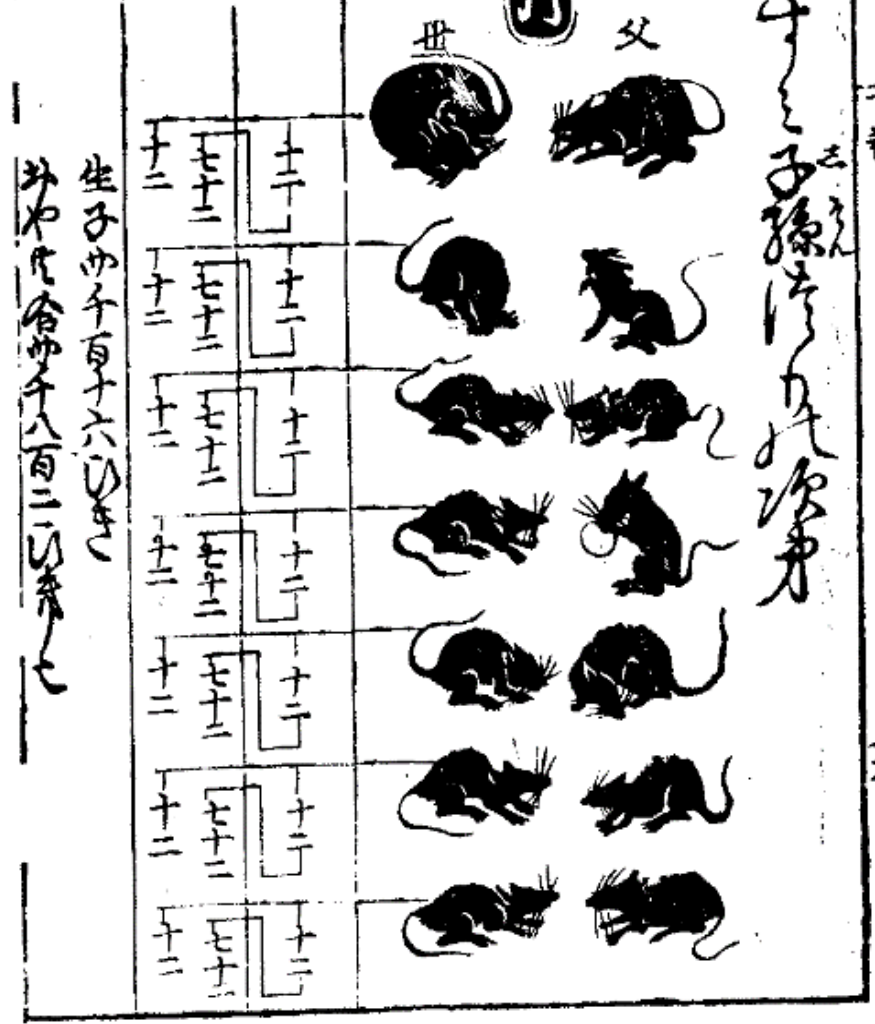 すミ子孫
次第
父
母
十二 七十二 十二
十二 七十二 十二
十二 七十二 十二
十二 七十二 十二
十二 七十二 十二
十二 七十二 十二
十二 七十二 十二
生子四千百十六ひき
おや共合四千八百二ひき也